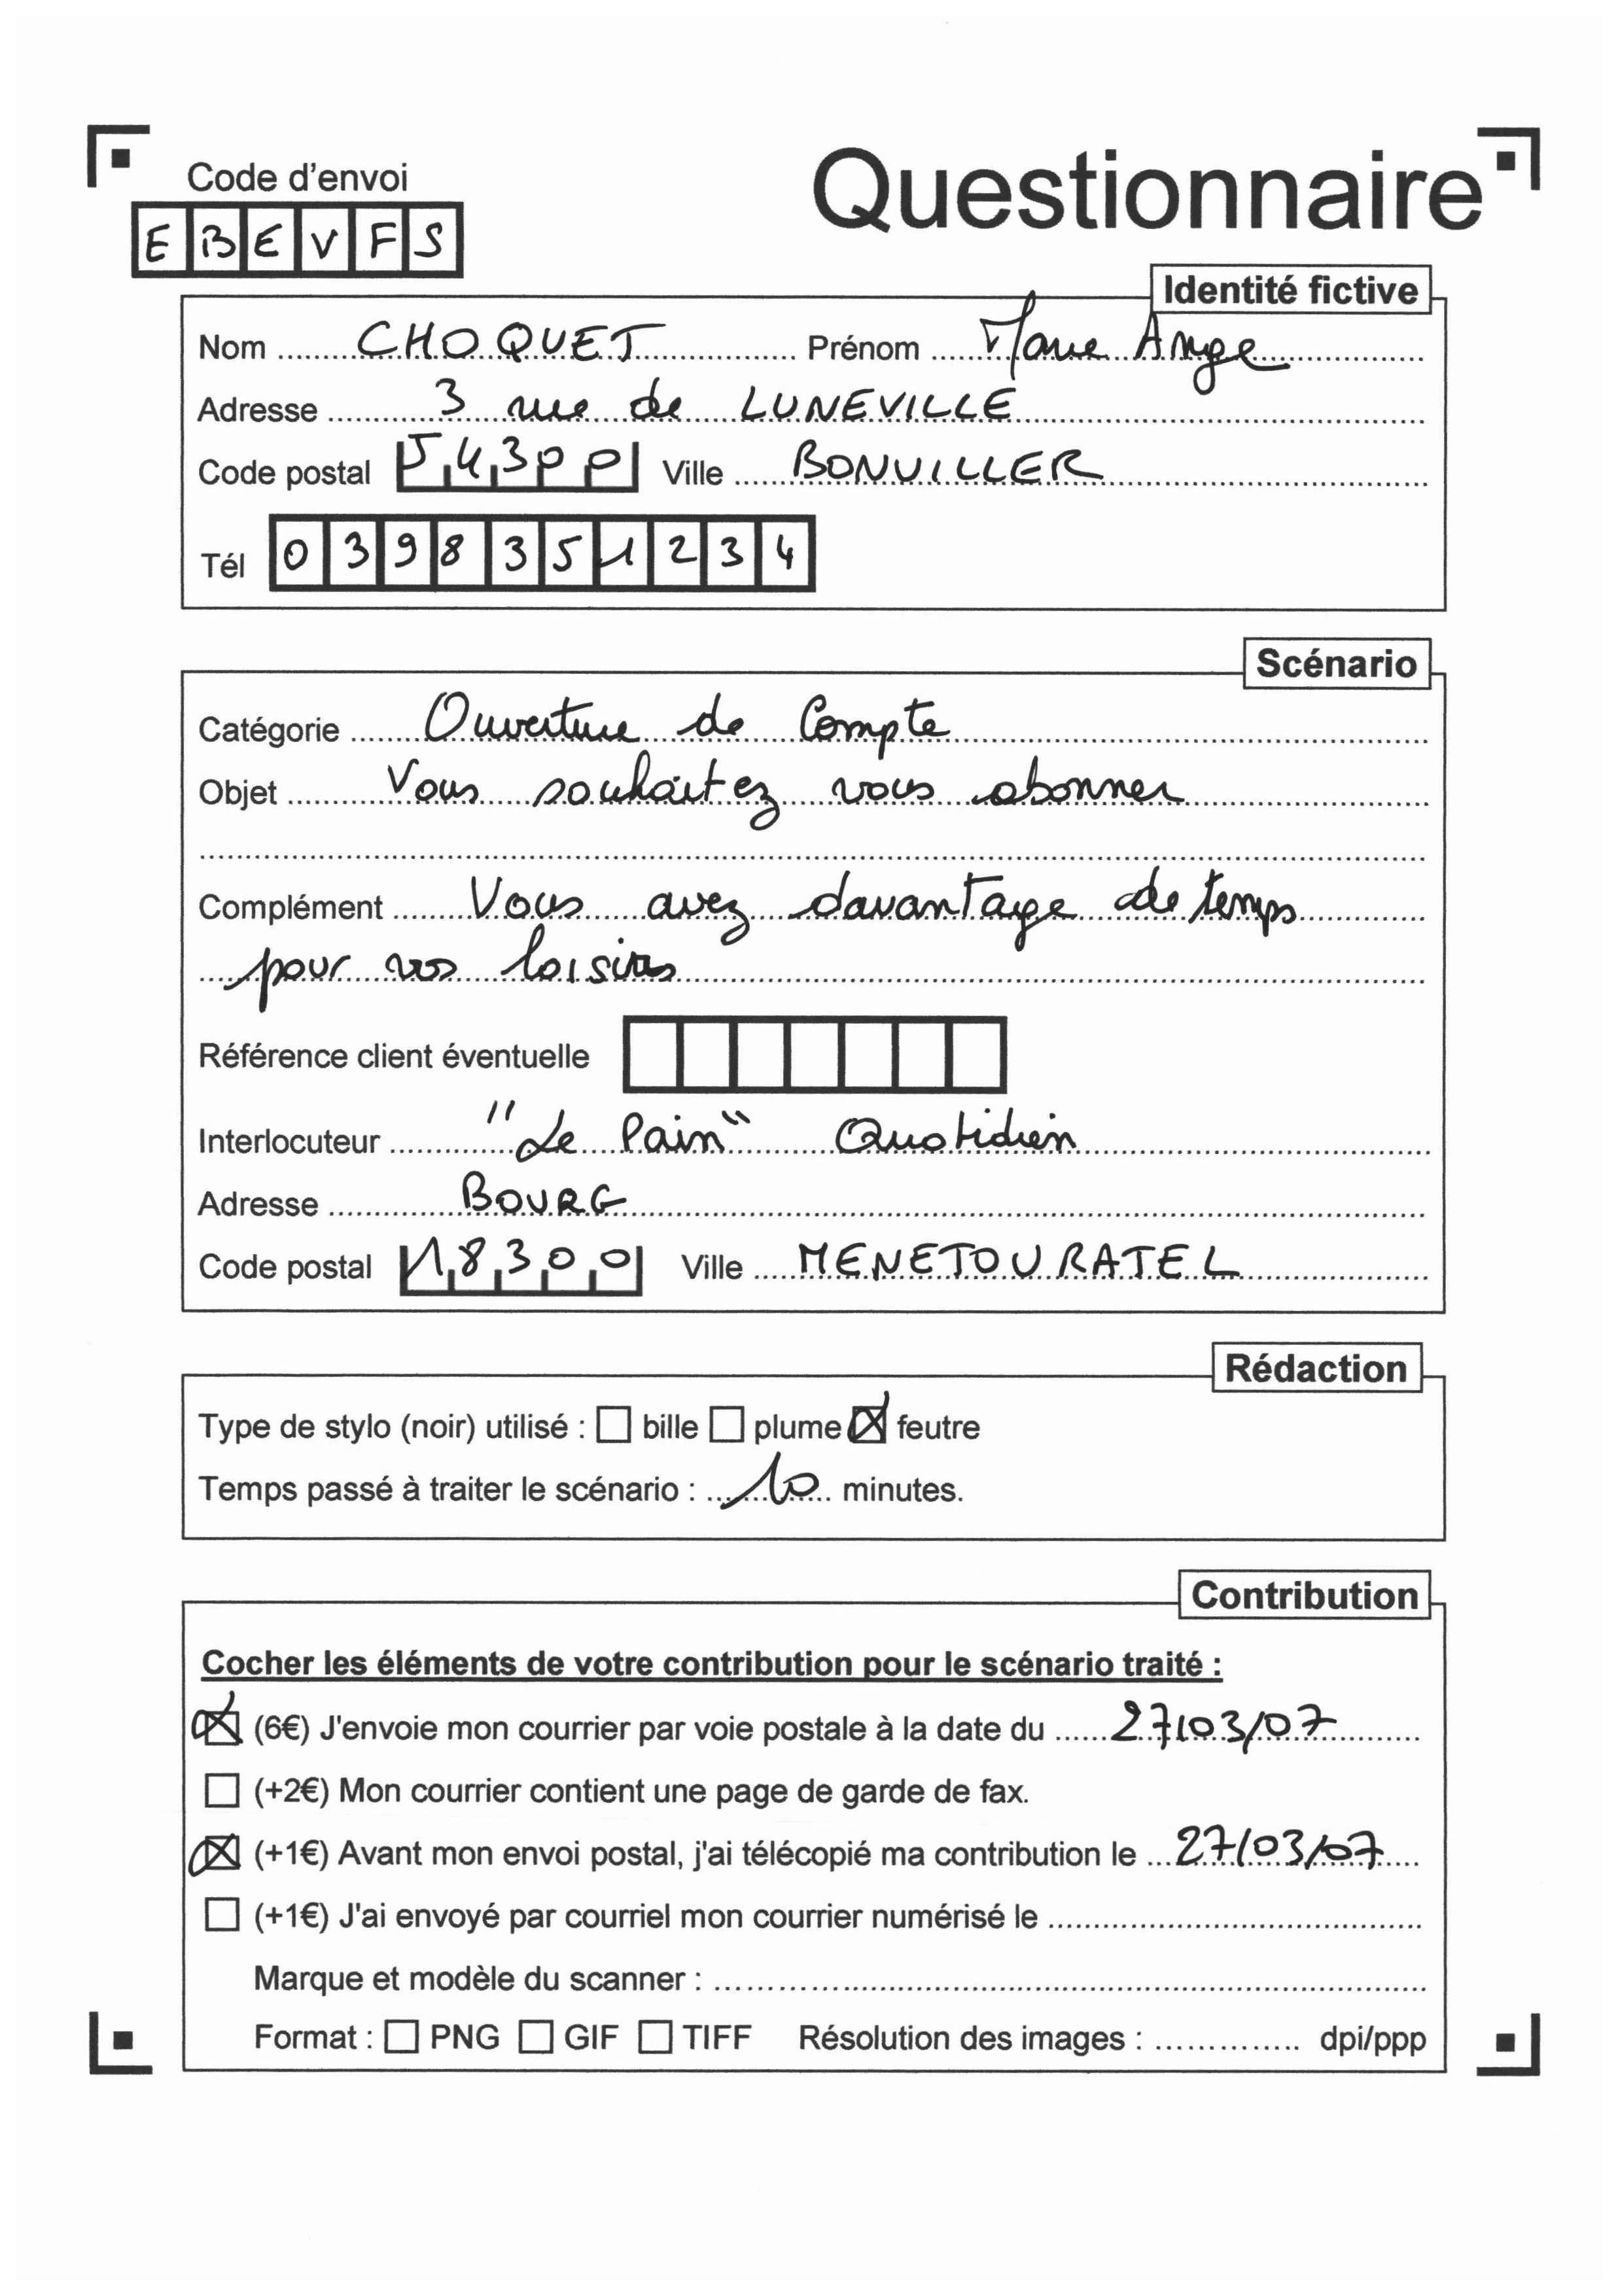 Code d'envoi
Questionnaire
E B E V F S
Identité fictive
Nom CHOQUET Prénom Marie Ange
Adresse 3 rue de LUNEVILLE
Code postal 54300 Ville BONVILLER
Tél 0398351234
Scénario
Catégorie Ouverture de Compte
Objet Vous souhaitez vous abonner
Complément Vous avez davantage de temps
pour vos loisirs
Référence client éventuelle
Interlocuteur "Le Pain" Quotidien
Adresse BOURG
Code postal 18300 Ville MENETOU RATEL
Rédaction
Type de stylo (noir) utilisé : bille plume feutre
Temps passé à traiter le scénario : 10 minutes.
Contribution
Cocher les éléments de votre contribution pour le scénario traité :
(6€) J'envoie mon courrier par voie postale à la date du 27/03/07
(+2€) Mon courrier contient une page de garde de fax.
(+1€) Avant mon envoi postal, j'ai télécopié ma contribution le 27/03/07
(+1€) J'ai envoyé par courriel mon courrier numérisé le
Marque et modèle du scanner :
Format : PNG GIF TIFF Résolution des images : dpi/ppp